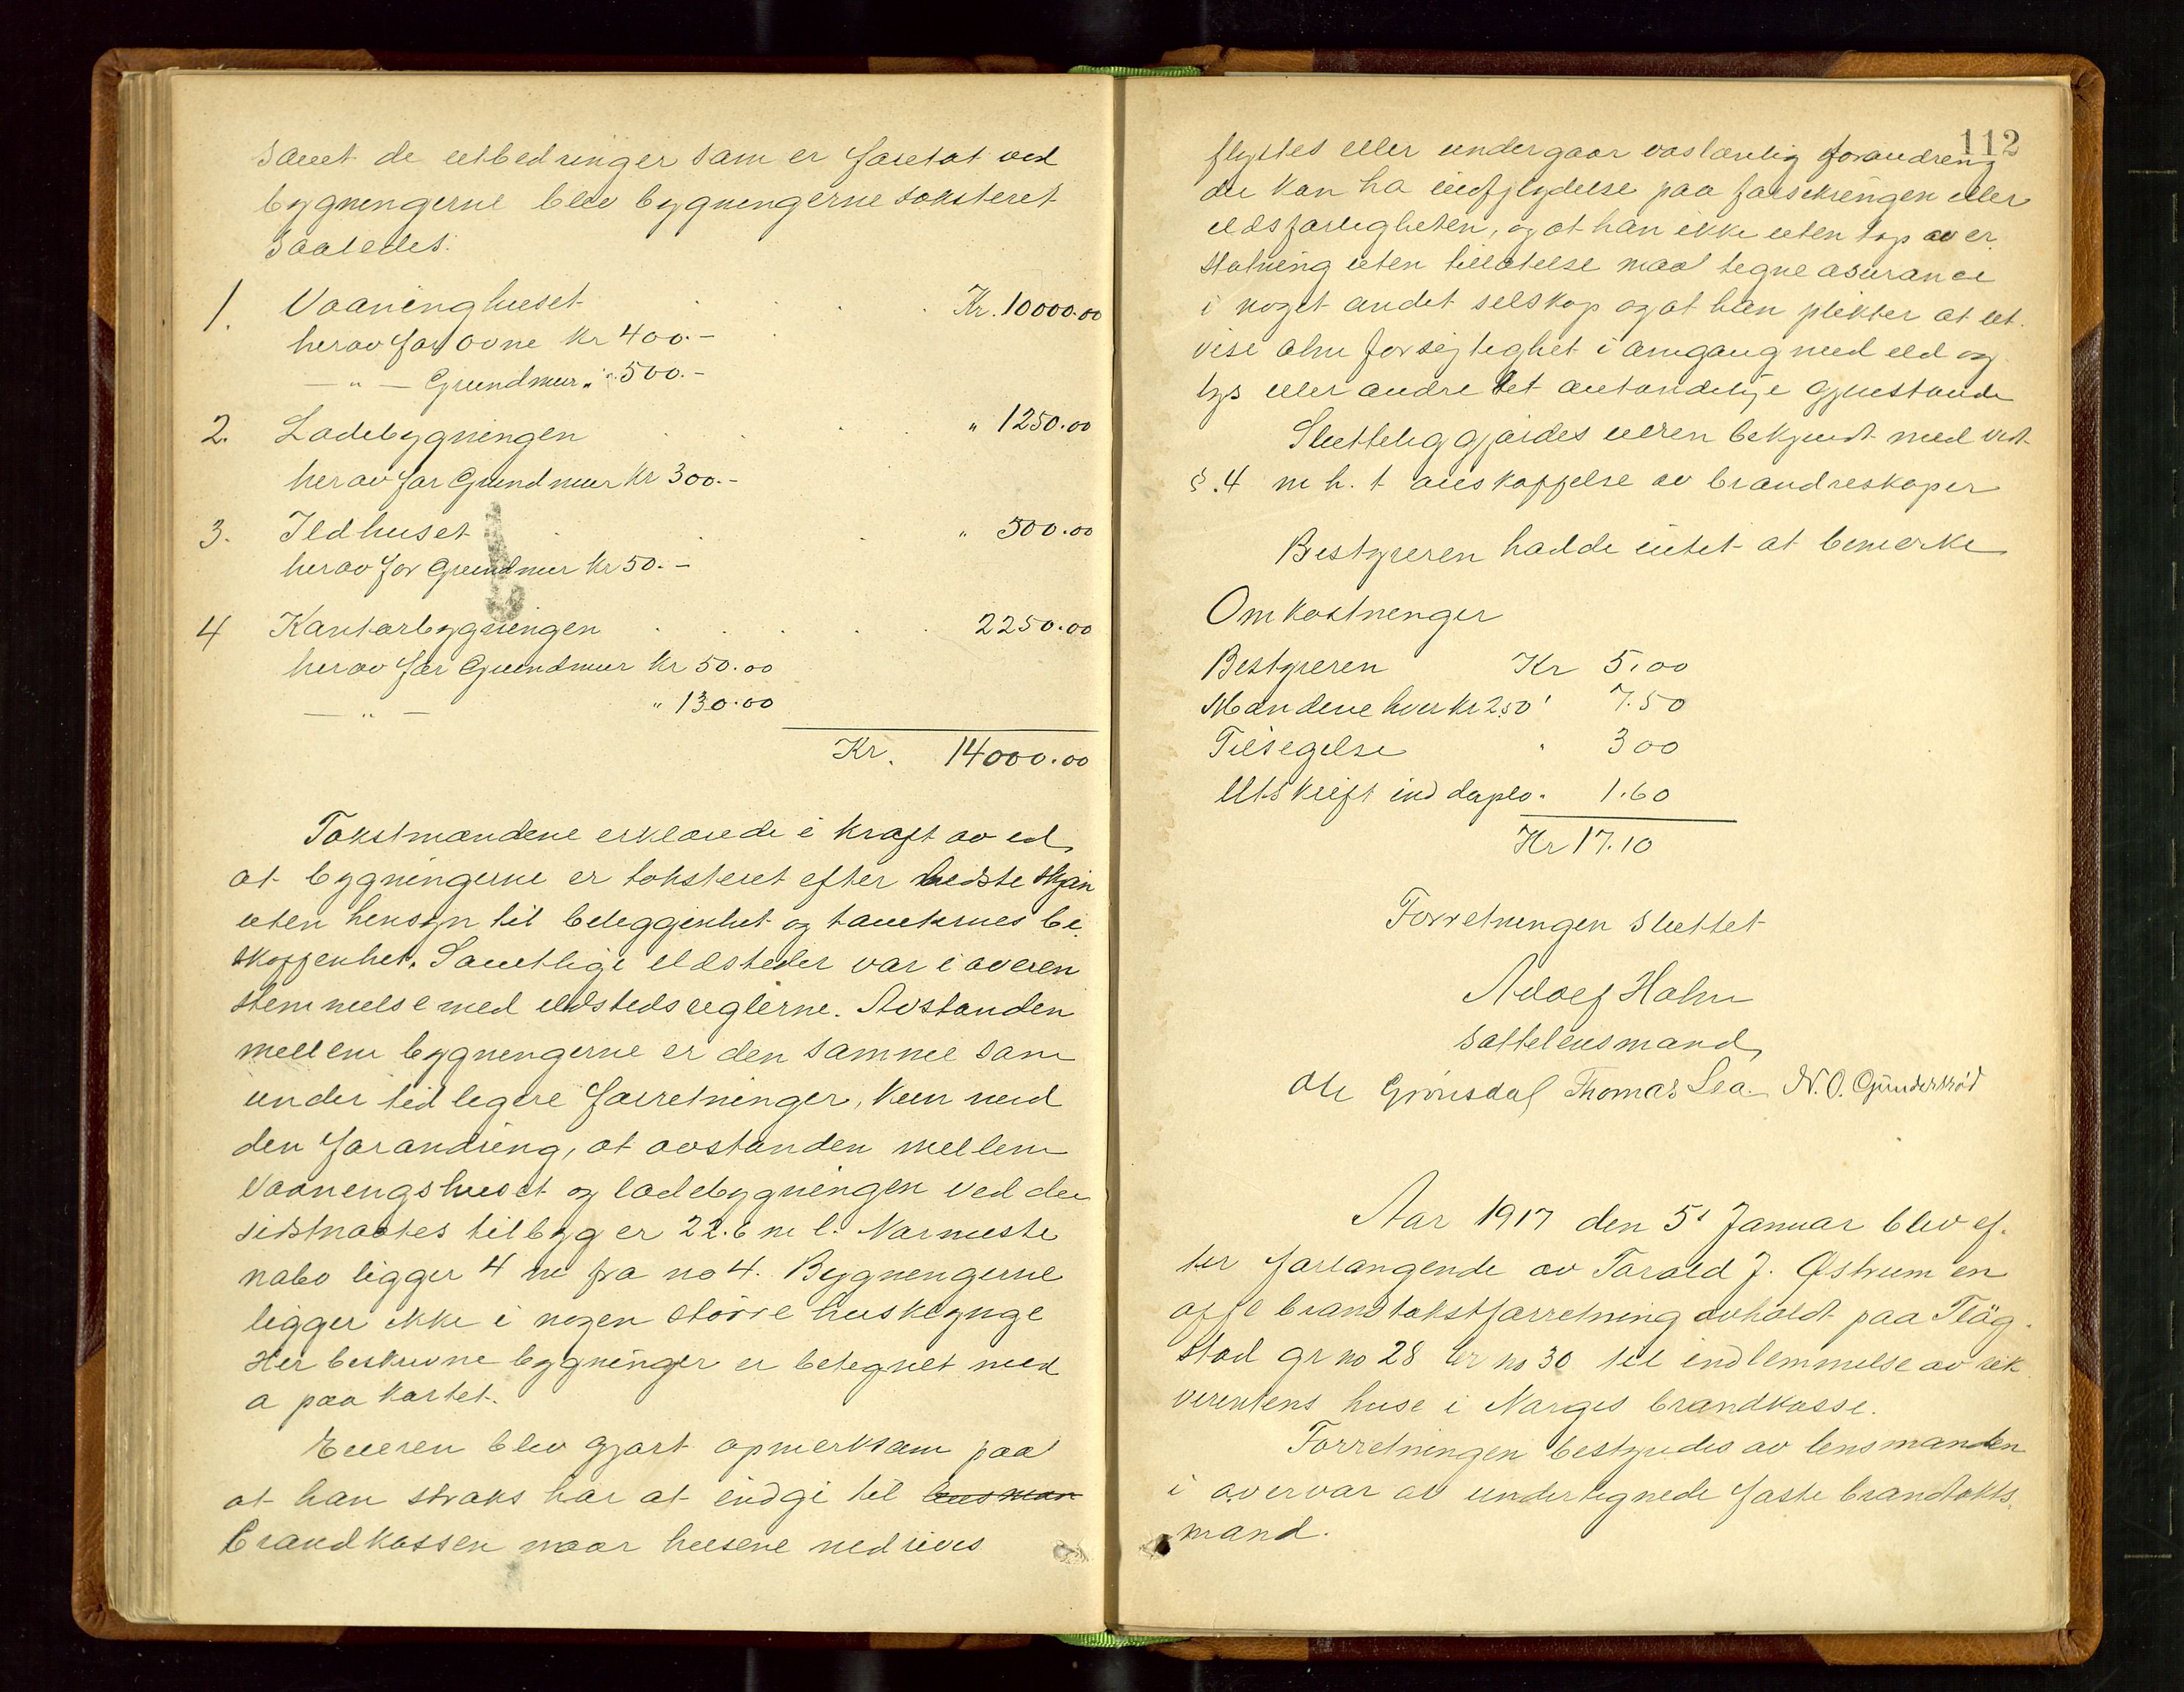 samt de utbedringer som er foretat ved
bygningerne blev bygningerne taksteret
saaledes:
1. Vaaninghuset . . . . Kr. 10000.00
herav for ovne Kr 400.-
— " — Grundmur " 500.-
2. Ladebygningen . . . . " 1250.00
herav for Grundmur Kr 300.-
3. Ildhuset . . . " 500.00
herav for Grundmur Kr 50.-
4 Kontorbygningen . . . . 2250.00
herav for Grundmur Kr 50.00
— " — " 130.00
Kr. 14000.00
Takstmændene erklærede i kraft av ed
at bygningerne er taksteret efter bedste skjøn
uten hensyn til beliggenhet og tomternes be
skaffenhet. Samtlige ildsteder var i overen
stemmelse med ildstedsreglerne. Avstanden
mellem bygningerne er den samme som
under tidligere forretninger, kun med
den forandring, at avstanden mellem
Vaaningshuset og ladebygningen ved den
sidstnævtes tilbyg er 22.6 m l. Nærmeste
nabo ligger 4 m fra no 4. Bygningerne
ligger ikke i nogen større husklynge
Her beskrevne bygninger er betegnet med
a paa kartet.
Eieren blev gjort opmerksom paa
at han straks har at indgi til lensman
Brandkassen naar husene nedrives
112
flyttes eller undergaar væsentlig forandring
der kan ha indflydelse paa forsikringen eller
ildsfarligheten, og at han ikke uten tap av er
statning uten tillatelse maa tegne asurance
i noget andet selskap og at han plikter at ut
vise alm forsigtighet i omgang med ild og
lys eller andre let antændelige gjenstande
Sluttelig gjordes eieren bekjendt med vedt
§.4 m h. t anskaffelse av brandreskaper
Bestyreren hadde intet at bemerke
Omkostninger
Bestyreren Kr 5.00
Mændene hver kr 2.50 " 7.50
Tilsigelse " 3 00
Utskrift ind duplo " 1.60
Kr 17.10
Forretningen sluttet
Adolf Holm
sattelensmand
Ole Grønsdal Thomas Lea N. O. Gunderstød
Aar 1917 den 5' Januar blev ef-
ter forlangende av Torald J. Østrem en
offl brandtakstforretning avholdt paa Fløg-
stad gr no 28 br no 30 til indlemmelse av rek
virentens huse i Norges brandkasse.
Forretningen bestyredes av lensmanden
i overvær av undertegnede faste brandtakts
mænd.